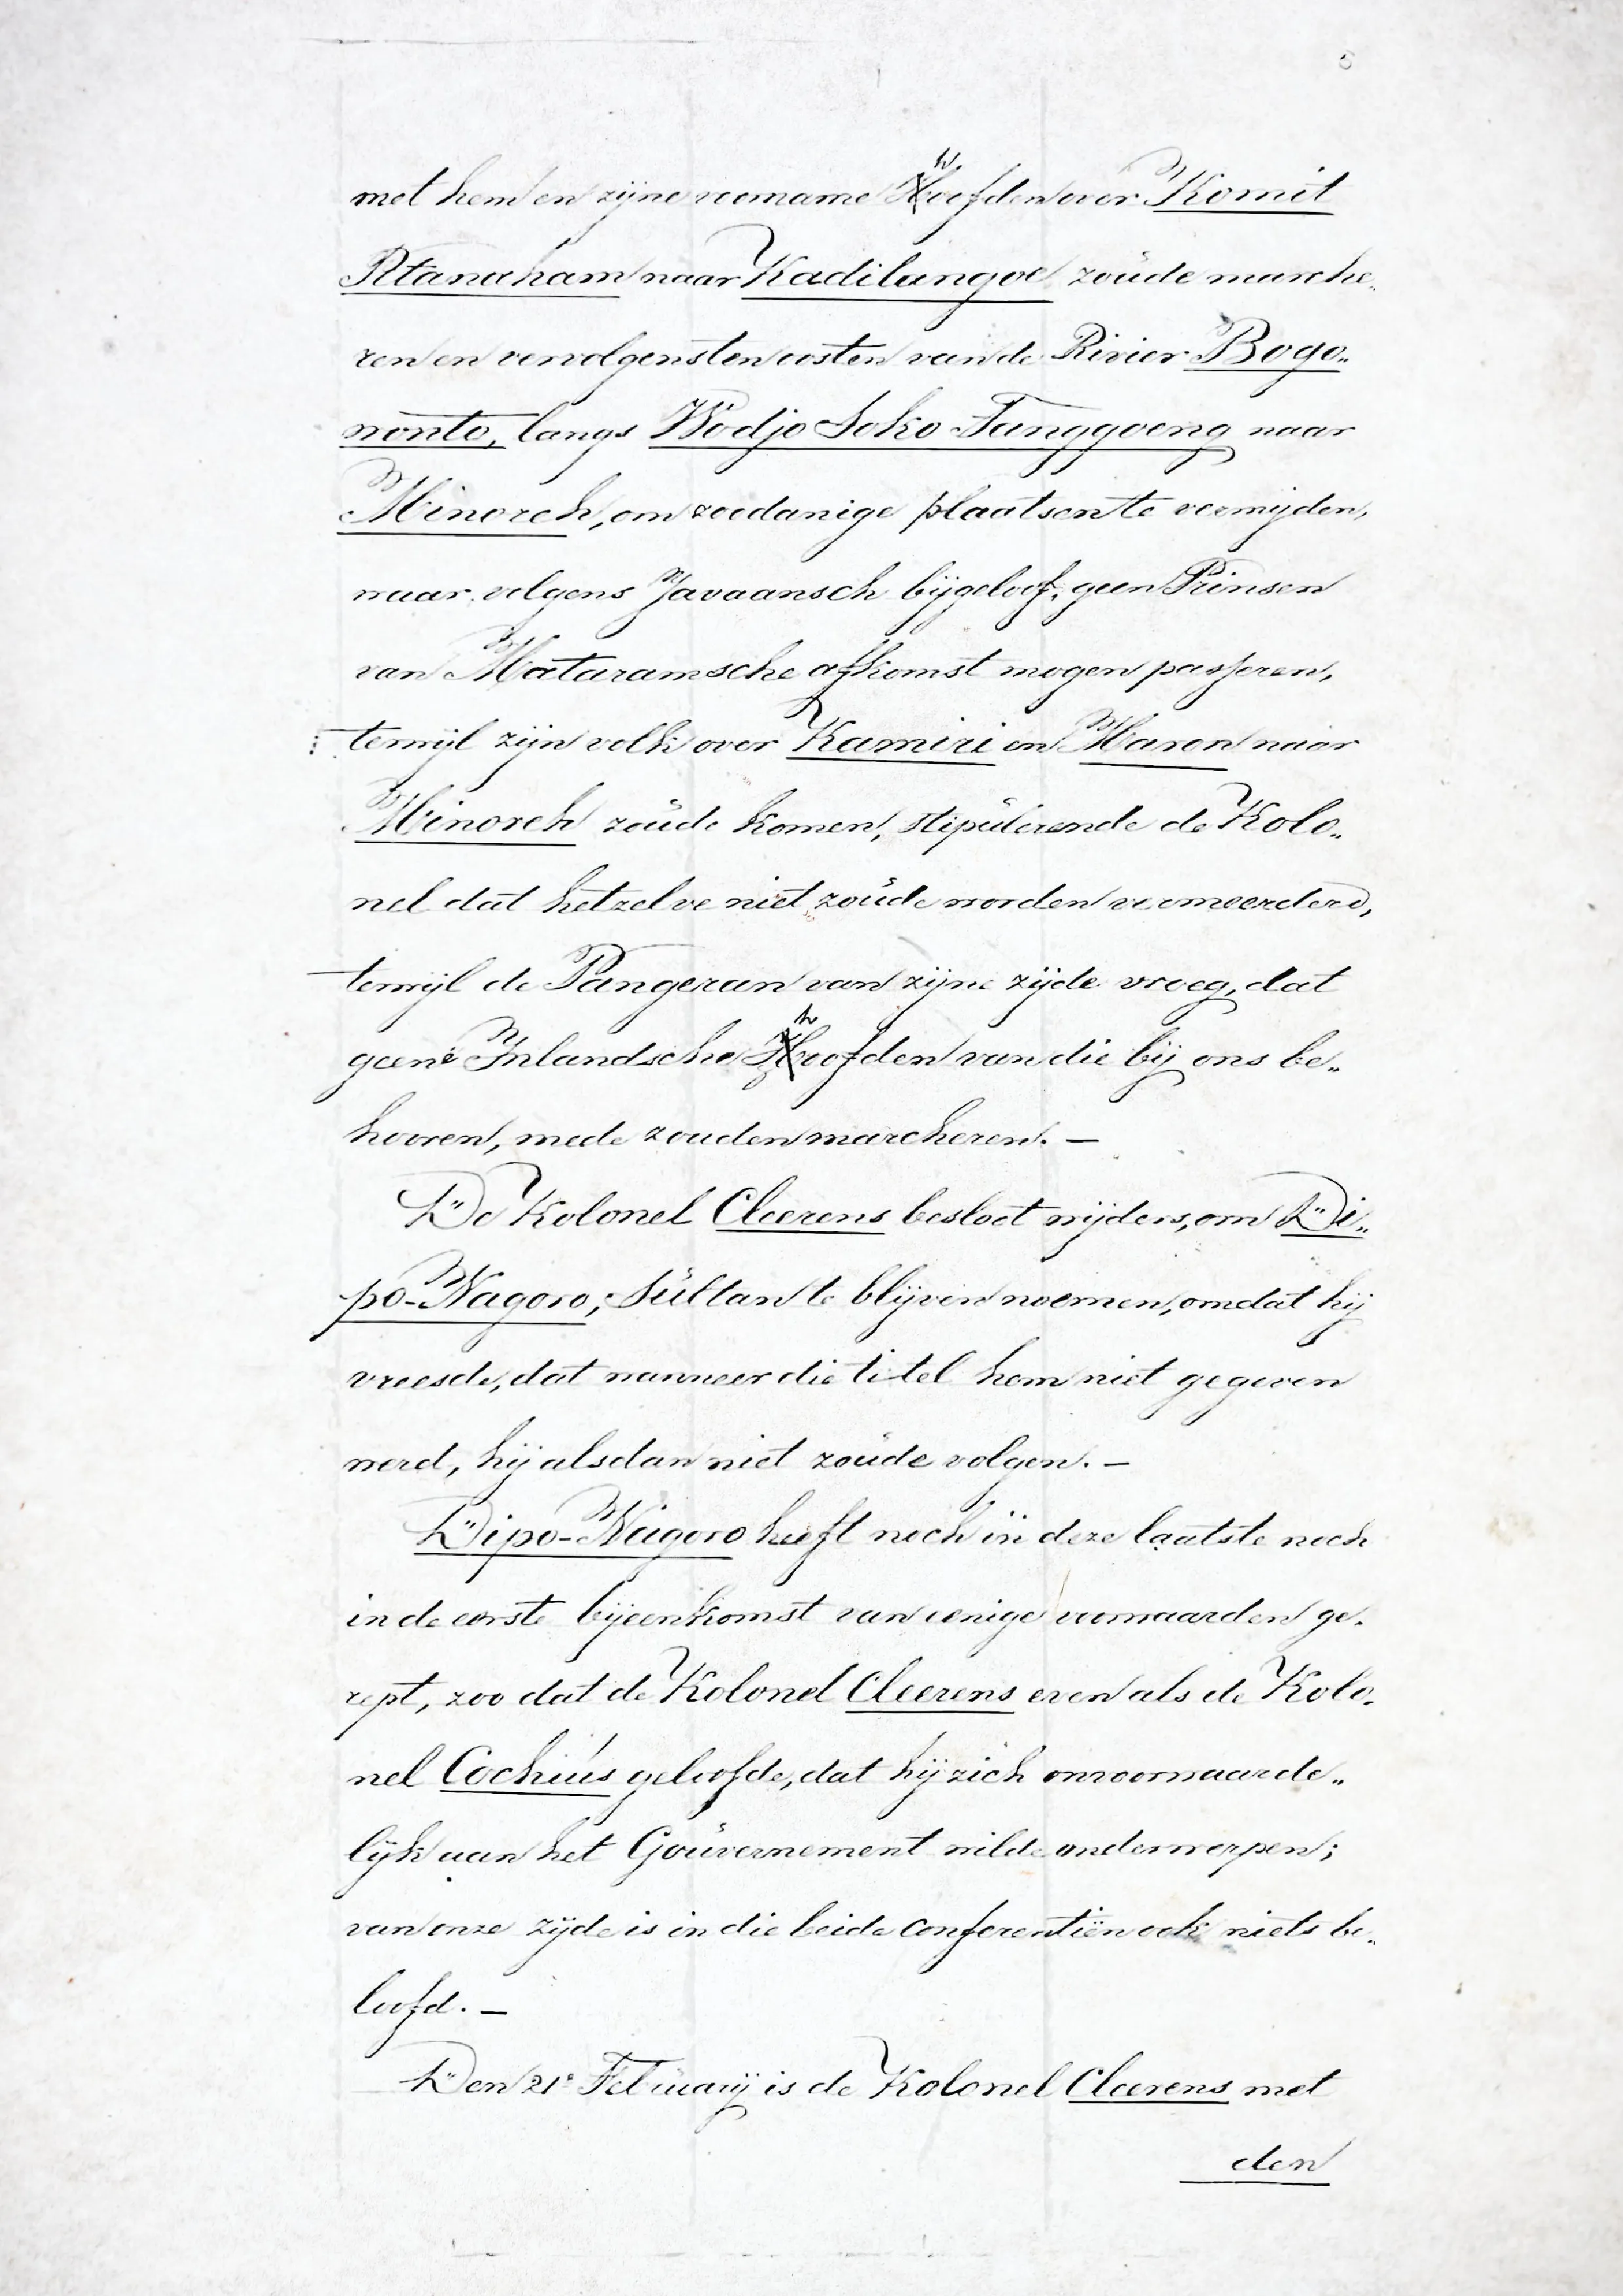 met hem en zijne voorname hoofden over Komit
Ptanaham naar Kadilangoe zoude marche„
ren en vervolgens ten oosten van de Rivier Bogo„
wonto, langs Wodjo Soko Tanggoeng naar
Minoreh, om zoodanige plaatsen te vermijden,
waar volgens Javaansch bijgeloof, geen Prinsen
van Mataramsche afkomst mogen passeren,
terwijl zijn volk over Kamiri en Maron naar
Minoreh zoude komen, stipulerende de Kolo„
nel dat hetzelve niet zoude worden vermeerderd,
terwijl de Pangeran van zijne zijde vroeg, dat
geene Inlandsche hoofden van die bij ons be„
hooren, mede zouden marcheren. —
De Kolonel Cleerens besloot wijders, om Di„
po-Nagoro, Sultan te blijven noemen, omdat hij
vreesde, dat wanneer die titel hem niet gegeven
werd, hij alsdan niet zoude volgen. —
Dipo-Nagoro heeft noch in deze laatste noch
in de eerste bijeenkomst van eenige voorwaarden ge„
rept, zoo dat de Kolonel Cleerens even als de Kolo„
nel Cochius geloofde, dat hij zich onvoorwaarde„
lijk aan het Gouvernement wilde onderwerpen;
van onze zijde is in die beide conferentiën ook niets be„
loofd. —
Den 21e Februarij is de Kolonel Cleerens met
den